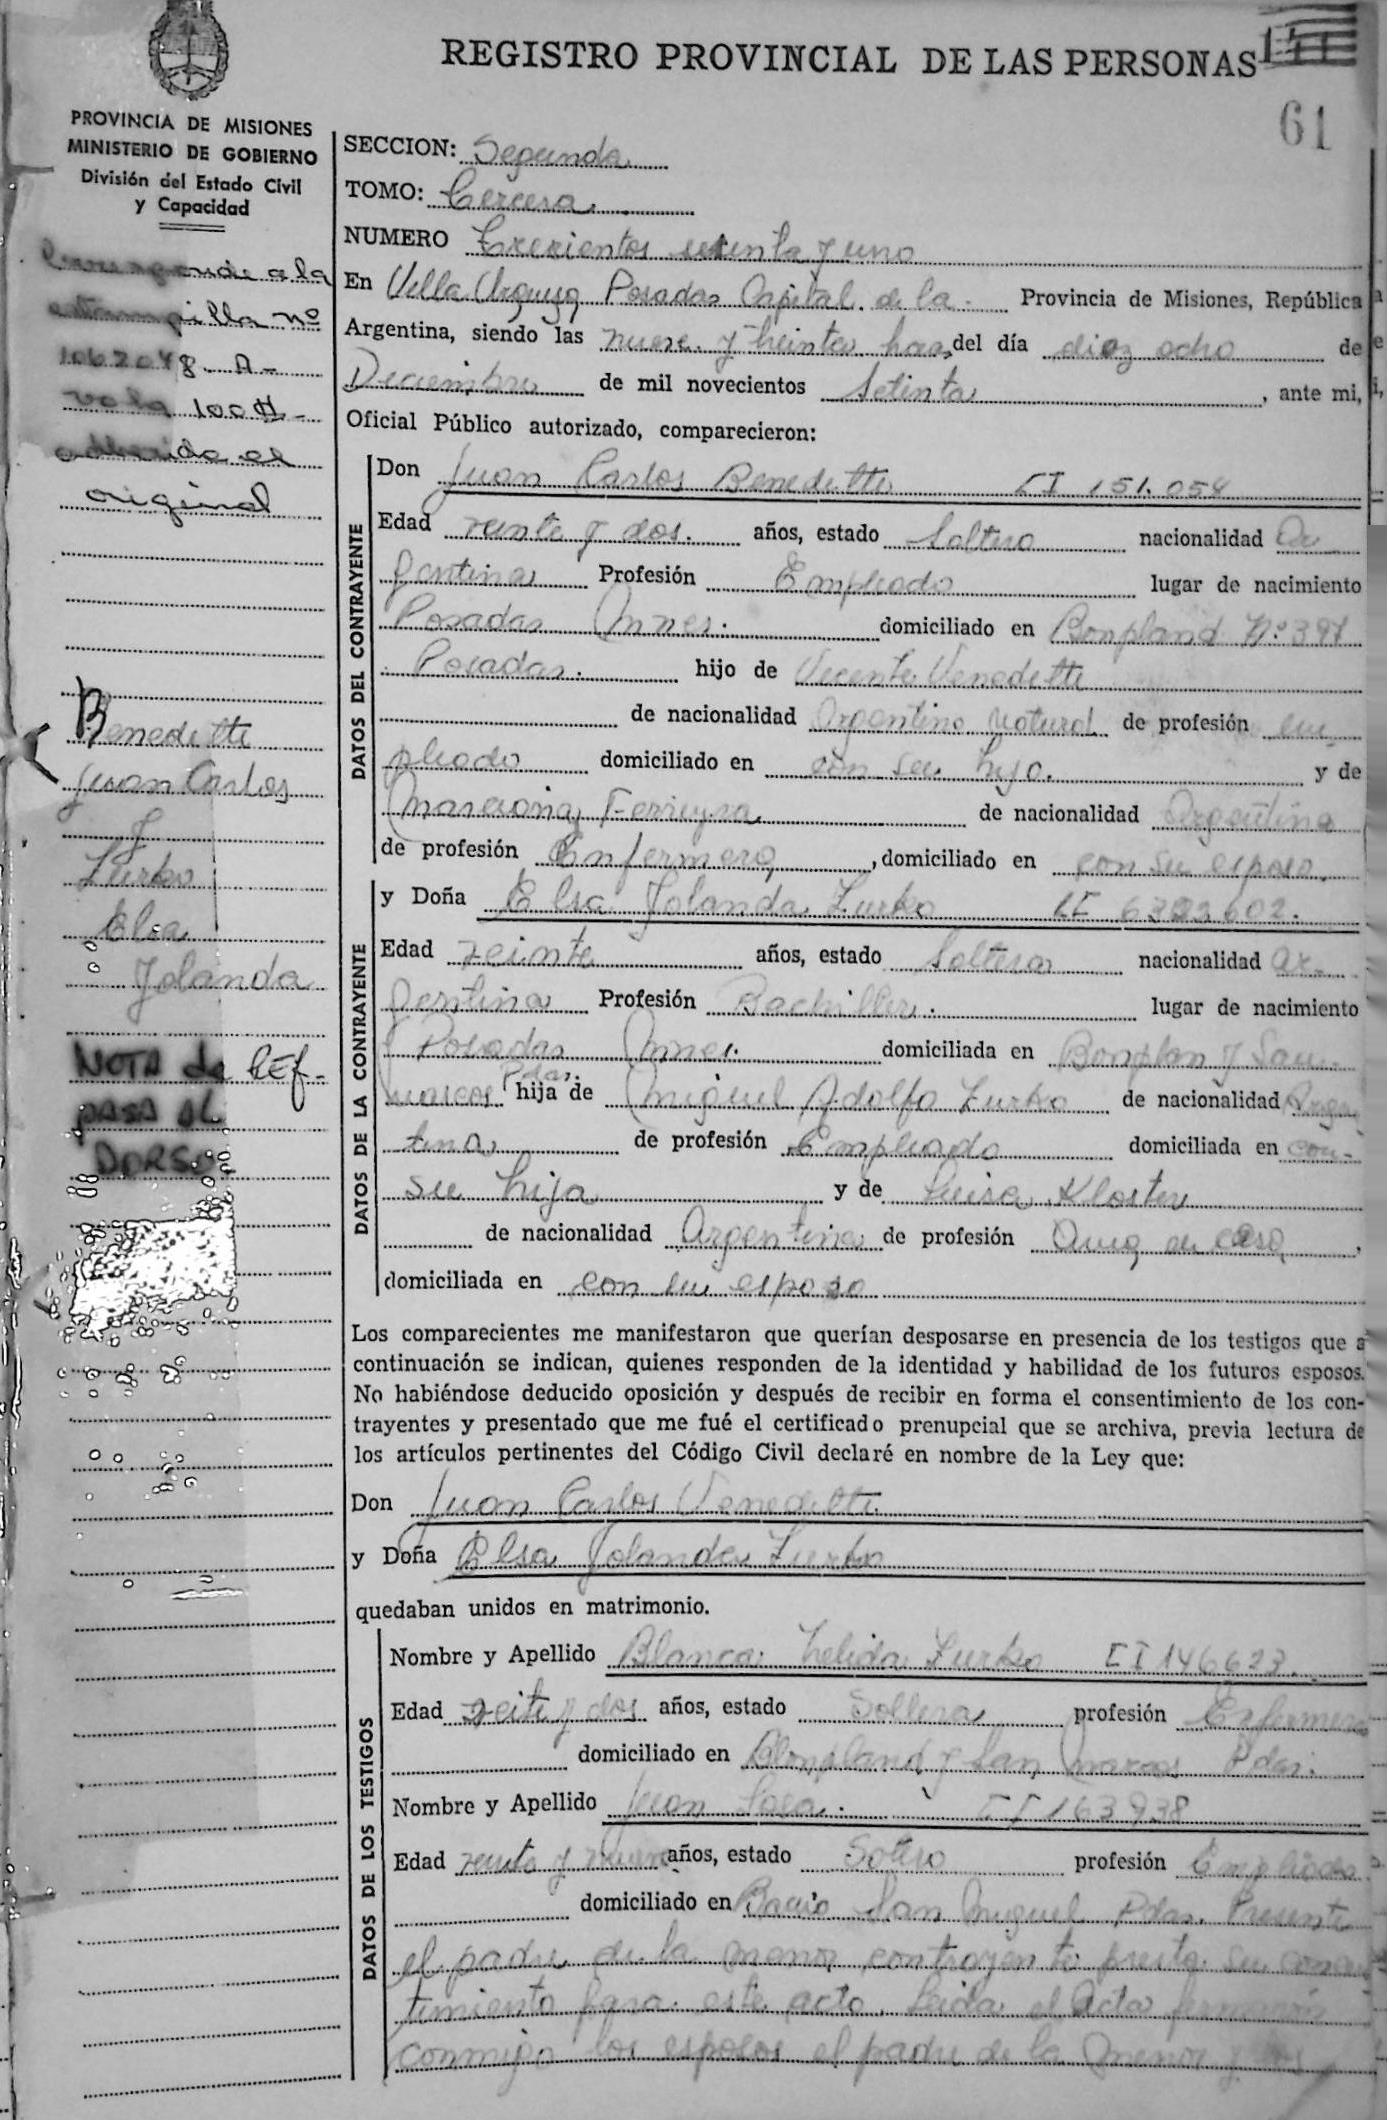 REGISTRO PROVINCIAL DE LAS PERSONAS
61
PROVINCIA DE MISIONES
MINISTERIO DE GOBIERNO
División del Estado Civil
y Capacidad
a la
estampilla nº
1062048 A-
vale 100
adherida al
original
Benedetti
Juan Carlos
y
Zurko
Elsa
Jolanda
NOTA de REF-
PASA AL
DORSO
SECCION: Segunda
TOMO: Tercera
NUMERO Trecientos y uno
En Villa Urquiza Posadas Capital de la Provincia de Misiones, República
Argentina, siendo las nueve y treinta horas del día diez ocho de
Deciembre de mil novecientos Setenta, ante mi,
Oficial Público autorizado, comparecieron:
DATOS DEL CONTRAYENTE
Don Juan Carlos Benedetti CI 151.054
Edad veinte y dos. años, estado Soltero nacionalidad Ar-
gentina Profesión Empleado lugar de nacimiento
Posadas Mnes. domiciliado en Bonpland Nº 397
Posadas. hijo de Vicente Venedetti
de nacionalidad Argentino Natural de profesión em-
pleado domiciliado en con su hijo. y de
Ferreyra de nacionalidad Argentina
de profesión Enfermera, domiciliado en con su esposo.
DATOS DE LA CONTRAYENTE
y Doña Elsa Jolanda Zurko LC 602.
Edad veinte años, estado Soltera nacionalidad Ar-
gentina Profesión Bachiller. lugar de nacimiento
Posadas Mnes. domiciliada en Bonplan y San
Marcos Pdas. hija de Miguel Adolfo Zurko de nacionalidad Argen
tina de profesión Empleado domiciliada en con-
su hija y de Luisa Kloster
de nacionalidad Argentina de profesión Ama en casa,
domiciliada en con su esposo
Los comparecientes me manifestaron que querían desposarse en presencia de los testigos que a
continuación se indican, quienes responden de la identidad y habilidad de los futuros esposos.
No habiéndose deducido oposición y después de recibir en forma el consentimiento de los con-
trayentes y presentado que me fué el certificado prenupcial que se archiva, previa lectura de
los artículos pertinentes del Código Civil declaré en nombre de la Ley que:
Don Juan Carlos Venedetti
y Doña Elsa Jolanda Zurko
quedaban unidos en matrimonio.
DATOS DE LOS TESTIGOS
Nombre y Apellido Blanca Nelida Zurko CI 146623.
Edad veite y dos años, estado Soltera profesión Enfermera
domiciliado en Bompland y San Marcos Pdas.
Nombre y Apellido Juan Sosa. CI 163938
Edad y años, estado Soltero profesión Empleado
domiciliado en Barrio San Miguel Pdas. Presente
el padre de la menor contrayente presta su consen
timiento para este acto. Leida el Acta
conmigo los esposos el padre de la menor y los